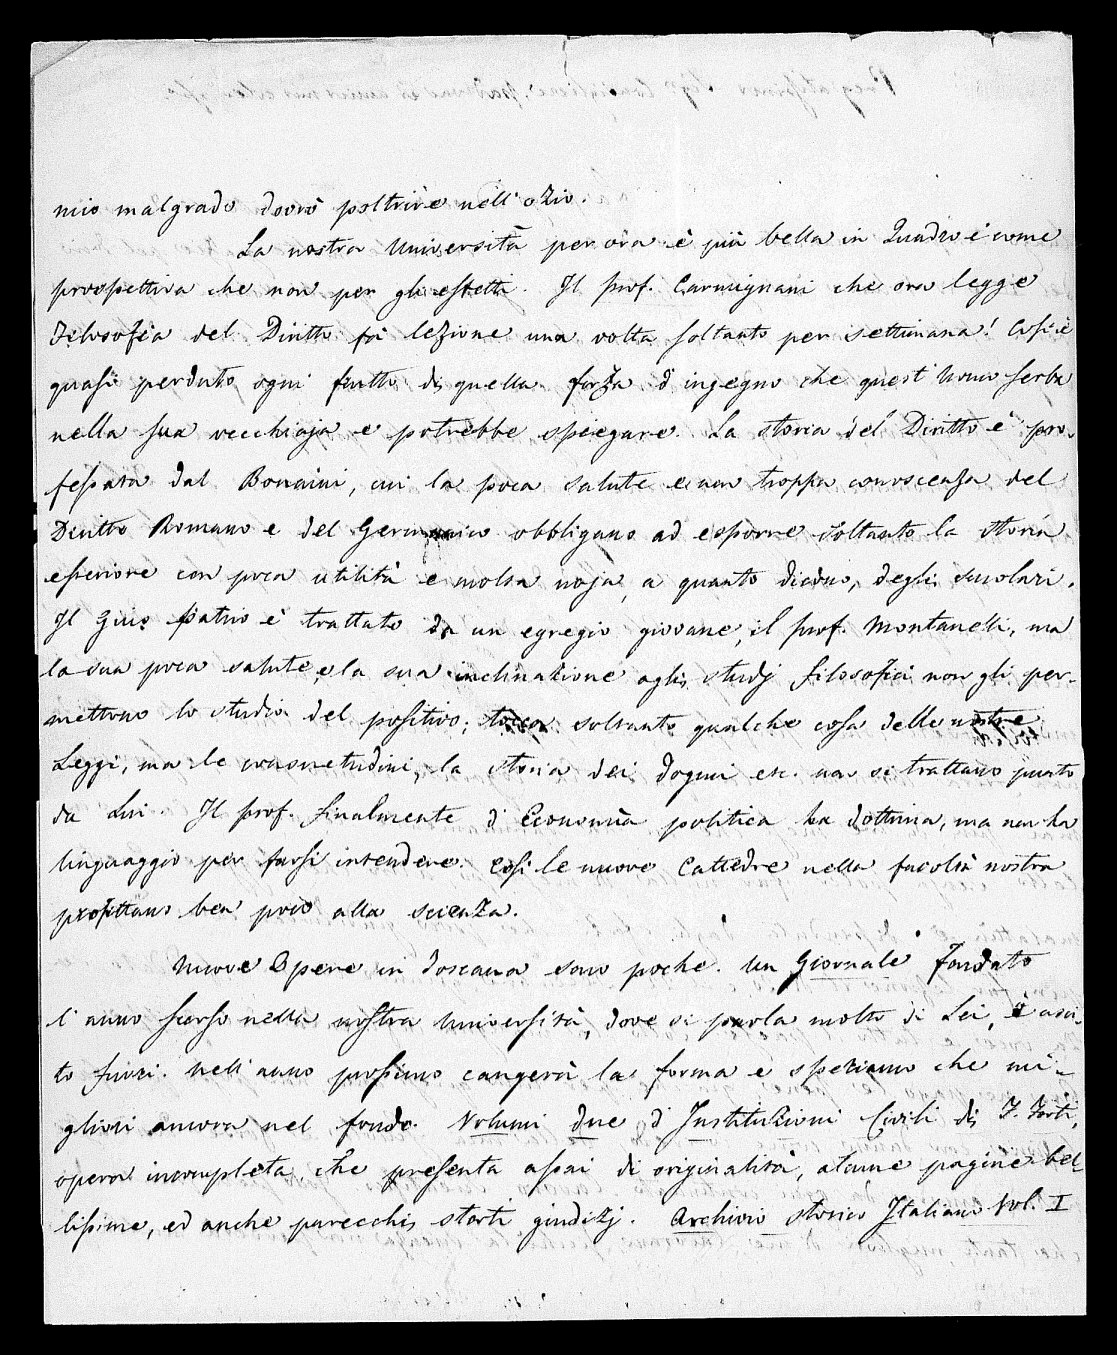 mio malgrado dovrò poltrire nell'ozio.
La nostra Università per ora è più bella in Quadro e come
prospettiva che non per gli effetti. Il prof. Carmignani che ora legge
Filosofia del Diritto fà lezione una volta soltanto per settimana! Così è
quasi perduto ogni frutto di quella forza d'ingegno che quest'Uomo serba
nella sua vecchiaja e potrebbe spiegare. La storia del Diritto è pro-
fessata dal Bonaini, cui la poca salute e non troppa conoscenza del
Diritto Romano e del Germanico obbligano ad esporre soltanto la storia
esteriore con poca utilità e molta noja, a quanto dicono, degli scolari.
Il Gius patrio è trattato da un egregio giovane, il prof. Montanelli, ma
la sua poca salute, e la sua inclinazione agli studj filosofici non gli per-
mettono lo studio del positivo; tocca soltanto qualche cosa delle nostre
Leggi, ma le consuetudini, la storia dei dogmi ec. non si trattano punto
da Lui. Il prof. finalmente d'Economia politica ha dottrina, ma non ha
linguaggio per farsi intendere. Così le nuove Cattedre nella facoltà nostra
profittano ben poco alla scienza.
Nuove Opere in Toscana sono poche. Un Giornale fondato
l'anno scorso nella nostra Università, dove si parla molto di Lei, è usci-
to fuori. Nell'anno prossimo cangerà la forma e speriamo che mi-
gliori ancora nel fondo. Volumi due d'Instituzioni Civili di F. Forti,
opera incompleta, che presenta assai di originalità, alcune pagine bel-
lissime, ed anche parecchi storti giudizj. Archivio storico Italiano Vol. I